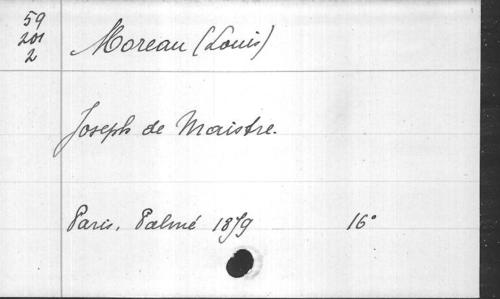 59
201
2
Moreau (Louis)
Joseph de Maistre.
Paris, Palmé 1879 16°